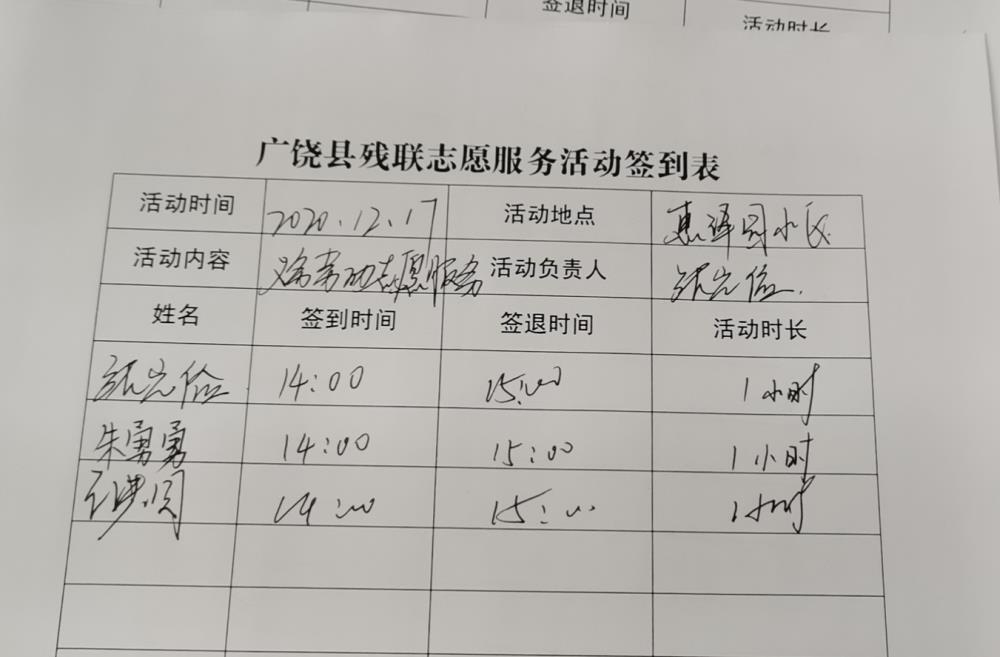 签退时间
活动时长
广饶县残联志愿服务活动签到表
活动时间 2020.12.17 活动地点 惠泽园小区
活动内容 义务劳动志愿服务 活动负责人
姓名 签到时间 签退时间 活动时长
14:00 15:00 1小时
朱勇勇 14:00 15:00 1小时
14:00 15:00 1小时